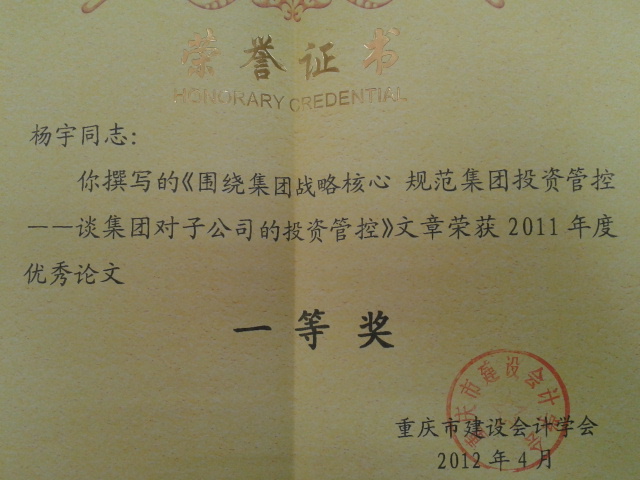 荣誉证书
HONORARY CREDENTIAL
杨宇同志:
你撰写的《围绕集团战略核心 规范集团投资管控
——谈集团对子公司的投资管控》文章荣获 2011 年度
优秀论文
一等奖
重庆市建设会计学会
重庆市建设会计学会
2012 年 4 月